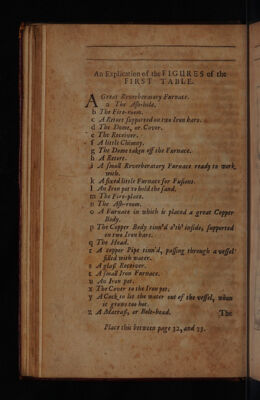 An Explication of the FIGURES of the
FIRST TABLE.
A Great Reverberatory Furnace.
a The Ash-hole.
b The Fire-room.
c A Retort supported on two Iron bars.
d The Dome, or Cover.
e The Receiver.
f A little Chimny.
g The Dome taken off the Furnace.
h A Retort.
i A small Reverberatory Furnace ready to work
with.
k A fixed little Furnace for Fusions.
l An Iron pot to hold the sand.
m The Fire-place.
n The Ash-room.
o A Furnace in which is placed a great Copper
Body.
p The Copper Body tinn'd o'th' inside, supported
on two Iron bars.
q The Head.
r A copper Pipe tinn'd, passing through a vessel
filled with water.
s A glass Receiver.
t A small Iron Furnace.
u An Iron pot.
x The Cover to the Iron pot.
y A Cock to let the water out of the vessel, when
it grows too hot.
z A Matrass, or Bolt-head.
The
Place this between page 32, and 33.